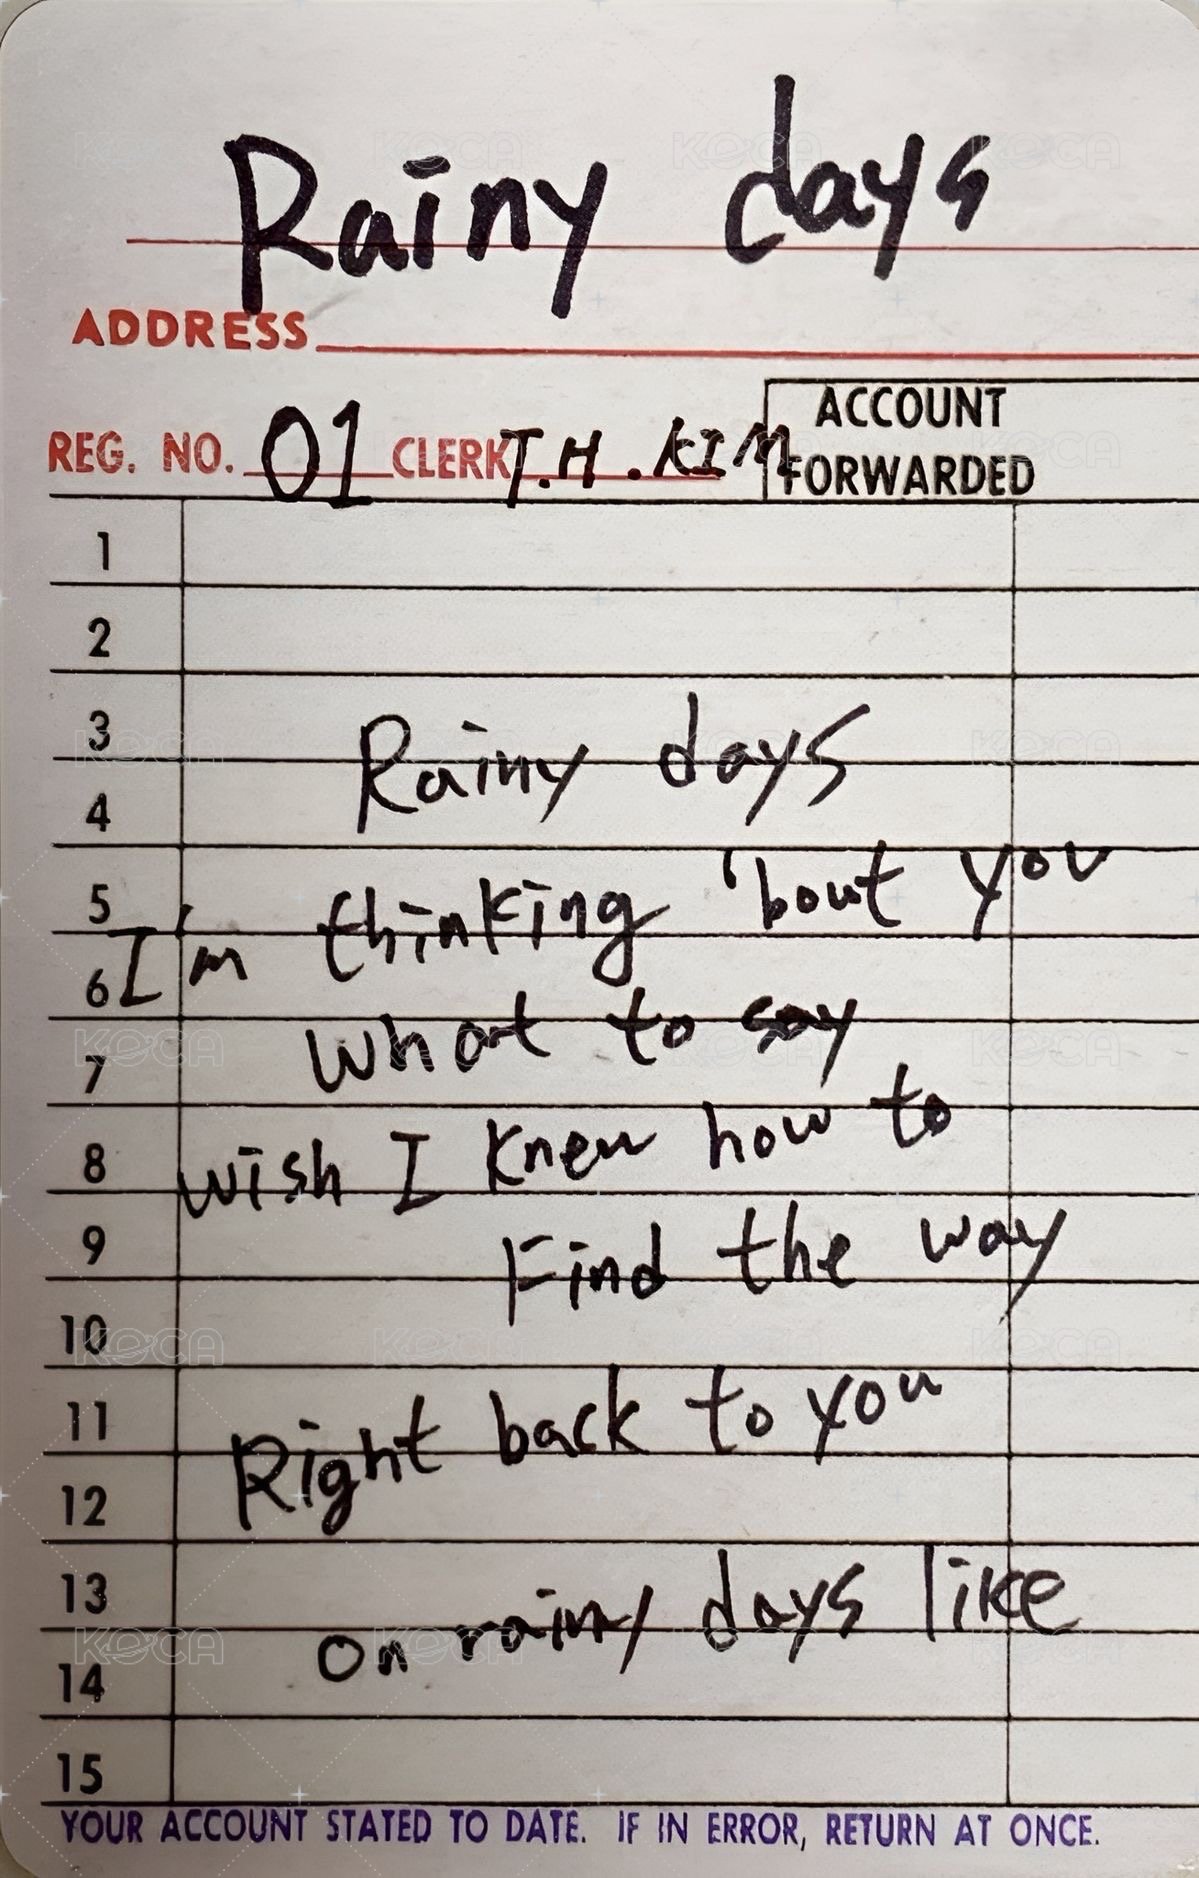 Rainy days
ADDRESS
REG. NO. 01 CLERK T.H.KIM ACCOUNT FORWARDED
1
2
3
Rainy days
4
5
I'm thinking 'bout you
6
what to say
7
8
wish I knew how to
9
Find the way
10
11
Right back to you
12
13
on rainy days like
14
15
YOUR ACCOUNT STATED TO DATE. IF IN ERROR, RETURN AT ONCE.
KOCA